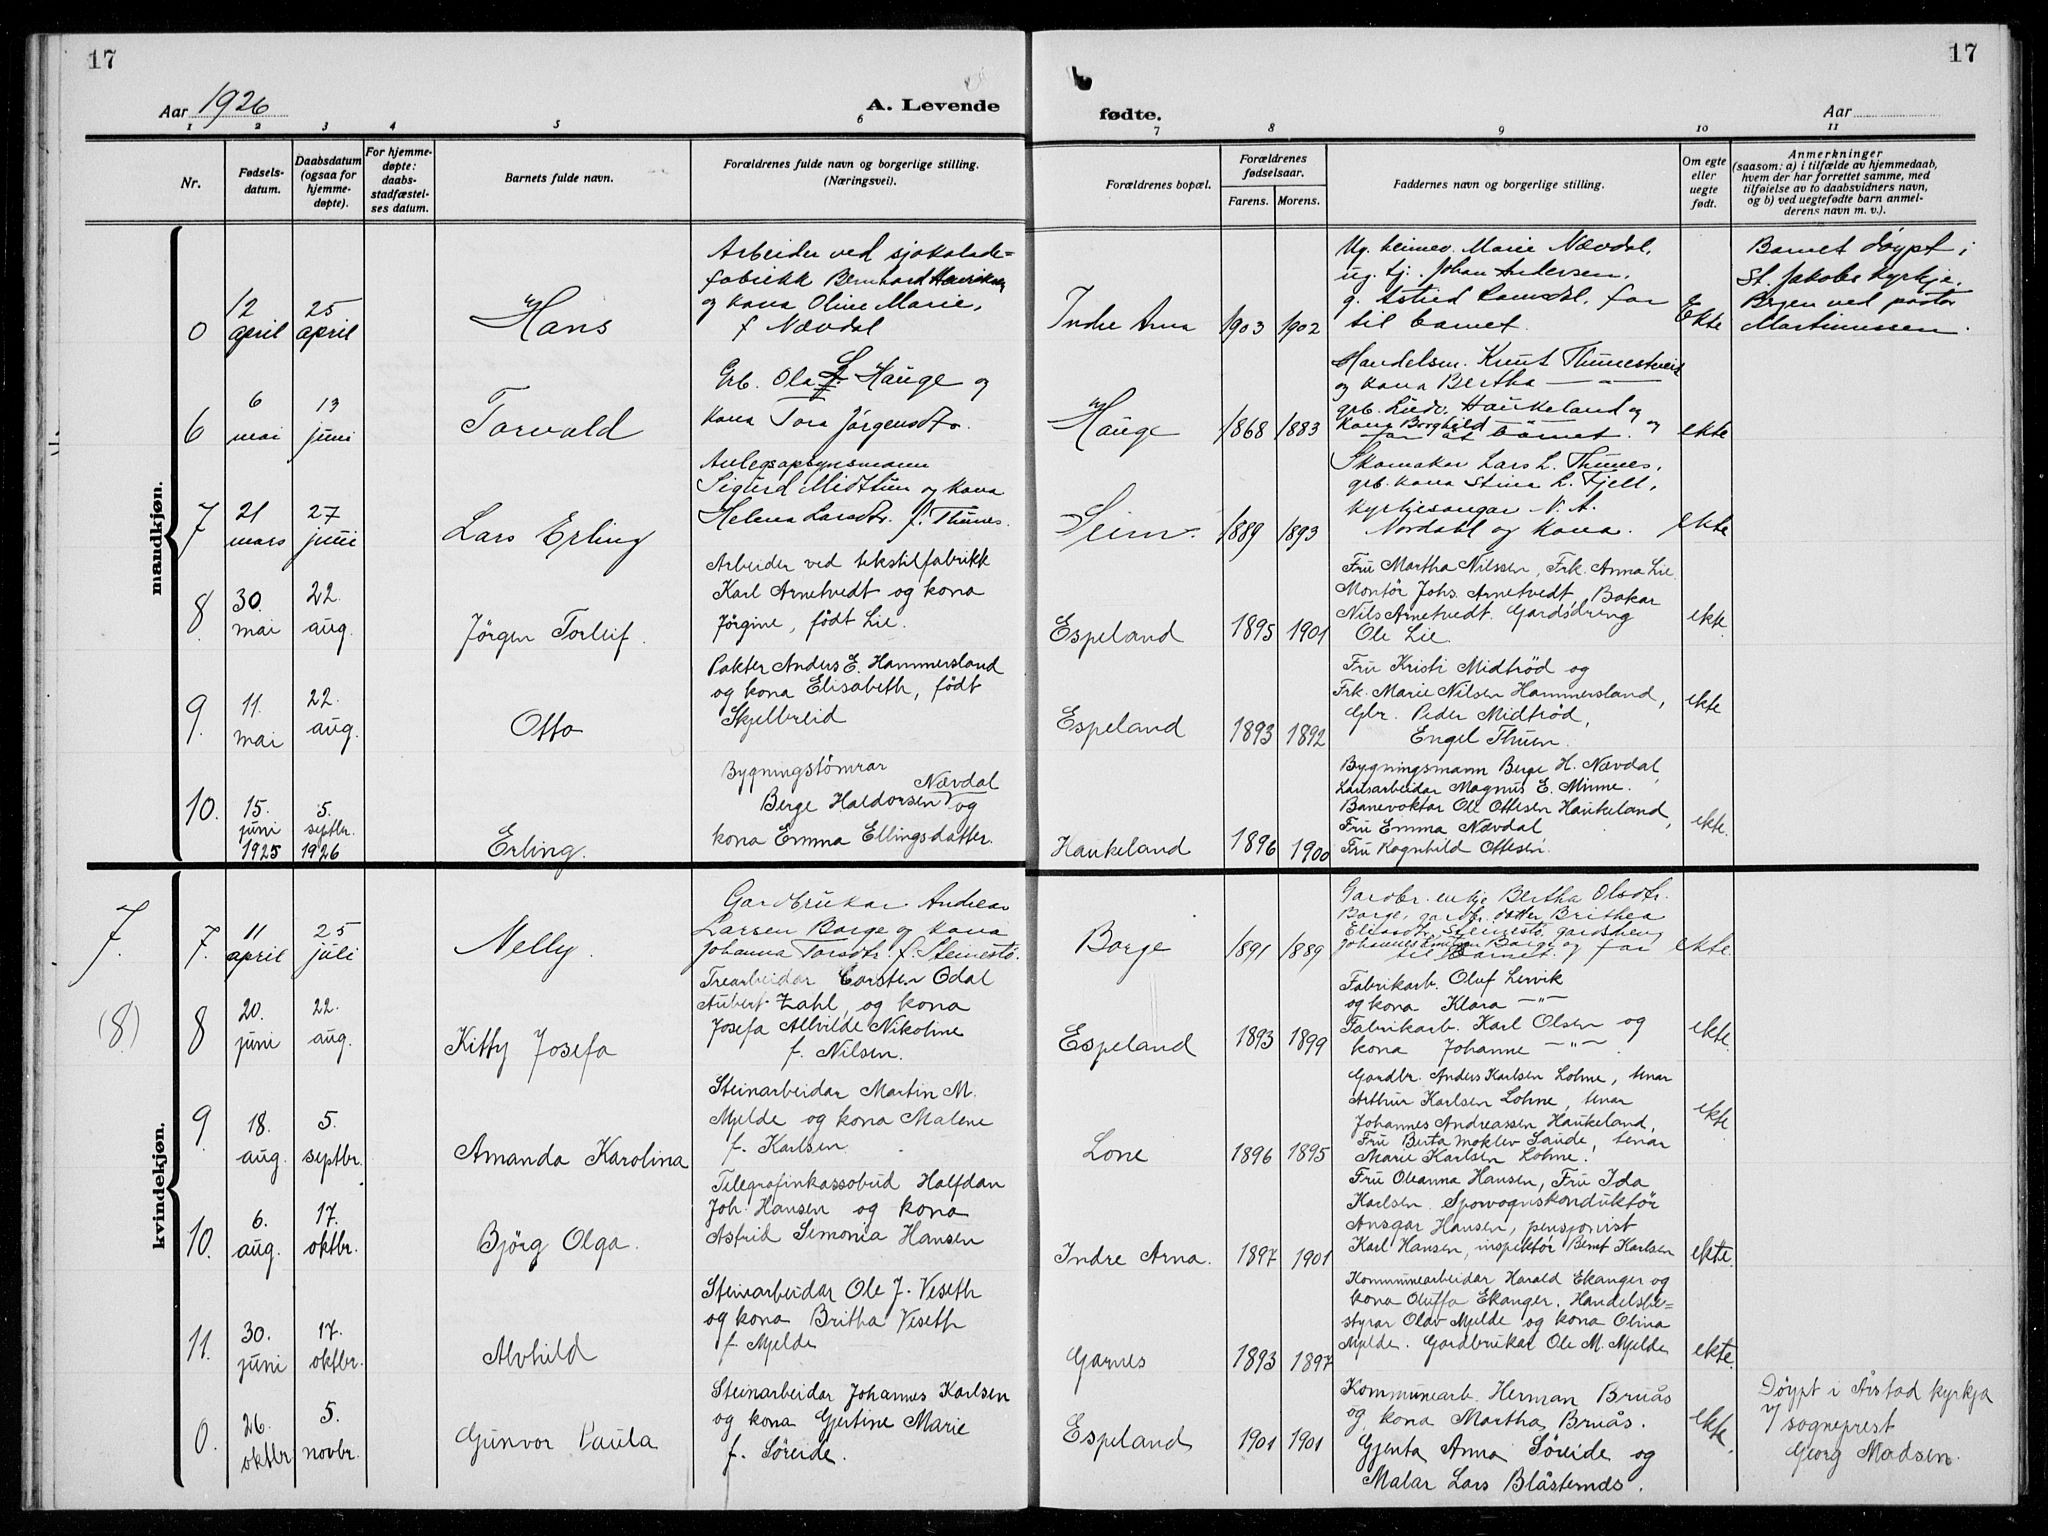 17
17
Aar 1926
A. Levende
fødte.
Aar
1 2 3 4 5 6 7 8 9 10 11
Nr.
Fødsels-
datum.
Daabsdatum
(ogsaa for
hjemme-
døpte).
For hjemme-
døpte:
daabs-
stadfæstel-
ses datum.
Barnets fulde navn.
Forældrenes fulde navn og borgerlige stilling.
(Næringsvei).
Forældrenes bopæl.
Forældrenes
fødselsaar.
Farens. Morens.
Faddernes navn og borgerlige stilling.
Om egte
eller
uegte
født.
Anmerkninger
(saasom: a) i tilfælde av hjemmedaab,
hvem der har forrettet samme, med
tilføielse av to daabsvidners navn,
og b) ved uegtefødte barn anmel-
derens navn m. v.).
mandkjøn.
0
12
april
25
april
Hans
Arbeider ved sjokolade=
fabrikk Bernhard
og kona Oline Marie,
f Nævdal
Indre Arna
1903 1902
Ug. heimev. Marie Nævdal,
ug. tj. Johan Andersen,
g. Astrid Ramsdal, far
til barnet.
Ekte
Barnet døypt i
St. Jakobs kyrkje,
Bergen ved pastor
Martinussen.
6
6
mai
13
juni
Torvald
Grb. Ola L. Hauge og
kona Tora Jørgensdtr.
Hauge
1868 1883
Handelsm. Knut Thunestveit
og kona Bertha — " —
grb. Ludv. Haukeland og
kona Borghild og
far åt barnet.
ekte
7
21
mars
27
juni
Lars Erling
Anlegsopsynsmann
Sigurd Midttun og kona
Helena Larsdtr. f. Thunes.
Seim.
1889 1893
Skomakar Lars L. Thunes,
grb. kona Stina L. Fjell,
kyrkjesongar N. A.
Nordahl og kona.
ekte
8
30.
mai
22.
aug.
Jörgen Torleif.
Arbeider ved tekstilfabrikk
Karl Arnetvedt og kona
Jørgine, født Lie.
Espeland
1895 1901
Fru Martha Nilssen, Frk. Anna Lie
Montør Johs. Arnetvedt, Bakar
Nils Arnetvedt. Gardsdreng
Ole Lie.
ekte.
9.
11.
mai
22.
aug.
Otto
Pakter Anders E. Hammersland
og kona Elisabeth, født
Skjelbreid
Espeland
1893 1892
Fru Kristi Midtröd og
Frk. Marie Nilsen Hammersland,
Gbr. Peder Midtröd,
Engel Thuen.
ekte
10.
15.
juni
1925
5.
septbr.
1926
Erling.
Bygningstömrar
Nævdal
Berge Haldorsen og
kona Emma Ellingsdatter.
Haukeland
1896 1900
Bygningsmann Berge H. Nævdal,
Lausarbeidar Magnus E. Minne.
Banevoktar Ole Ottesen Haukeland,
Fru Emma Nævdal
Fru Ragnhild Ottesen.
ekte.
kvindekjøn.
7.
7.
11
april
25
juli
Nelly.
Gardbrukar Andreas
Larsen Borge og kona
Johanna Larsdtr. f. Steinestö.
Borge
1891 1889
Gardbr. enkje Bertha Olsdtr.
Borge, gardbr. datter Brithea
Steinestö gardsdreng
Johannes Borge og far
til barnet.
ekte.
(8)
8
20.
juni
22.
aug.
Kitty Josefa
Trearbeidar Carsten Odal
Aubert Zahl, og kona
Josefa Allvilde Nikoline
f. Nilsen.
Espeland
1893 1899
Fabrikarb. Oluf Lervik
og kona Klara — " —
Fabrikarb. Karl Olsen og
kona Johanne — " —
ekte.
9
18.
aug.
5.
septbr.
Amanda Karolina
Steinarbeidar Martin M.
Mjelde og kona Malene
f. Karlsen.
Lone
1896 1895
Gardbr. Anders Karlsen Lohne, tenar
Arthur Karlsen Lohne, tenar
Johannes Andreassen Haukeland,
Fru Berta Moklev Saude, tenar
Marie Karlsen Lohne.
ekte.
10.
6.
aug.
17.
oktbr.
Björg Olga.
Telegrafinkassobud Halfdan
Joh. Hansen og kona
Astrid Semonia Hansen
Indre Arna.
1897 1901
Fru Oleanna Hansen, Fru Ida
Karlsen. Sporvognskonduktör
Ansgar Hansen, pensjonist
Karl Hansen, inspektör Bernt Karlsen
ekte.
11.
30.
juni
17.
oktbr.
Alvhild
Steinarbeidar Ole J. Veseth
og kona Britha Veseth
f. Mjelde
Garnes
1893 1897
Kommunearbeidar Harald Ekanger og
kona Oluffa Ekanger. Handelsbe=
styrar Olav Mjelde og kona Olina
Mjelde. Gardbrukar Ole M. Mjelde
ekte.
0.
26.
oktbr
5.
novbr.
Gunvor Paula
Steinarbeidar Johannes Karlsen
og kona Gjertine Marie
f. Söreide.
Espeland
1901 1901
Kommunearb. Herman Bruås
og kona Martha Bruås.
Gjenta Anna Söreide og
Malar Lars Blåsternds.
ekte.
Döypt i Årstad kyrkja
v/ sogneprest
Georg Madsen.